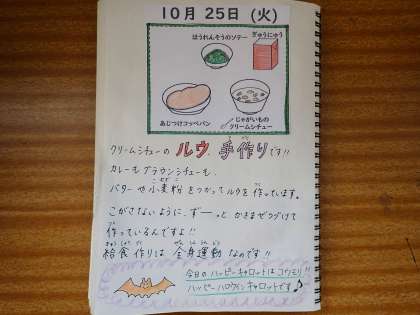 10月 25日 (火)
ほうれんそうのソテー
ぎゅうにゅう
あじつけコッペパン
じゃがいもの
クリームシチュー
クリームシチューの ルウ 手作りです!!
カレーも ブラウンシチューも、
バターや 小麦粉をつかってルウを作っています。
こがさないように、ずーっと かきまぜつづけて
作っているんですよ!!
給食作りは 全身運動 なのです!!
今日のハッピーキャロットはコウモリ!!
ハッピーハロウィンキャロットです♪